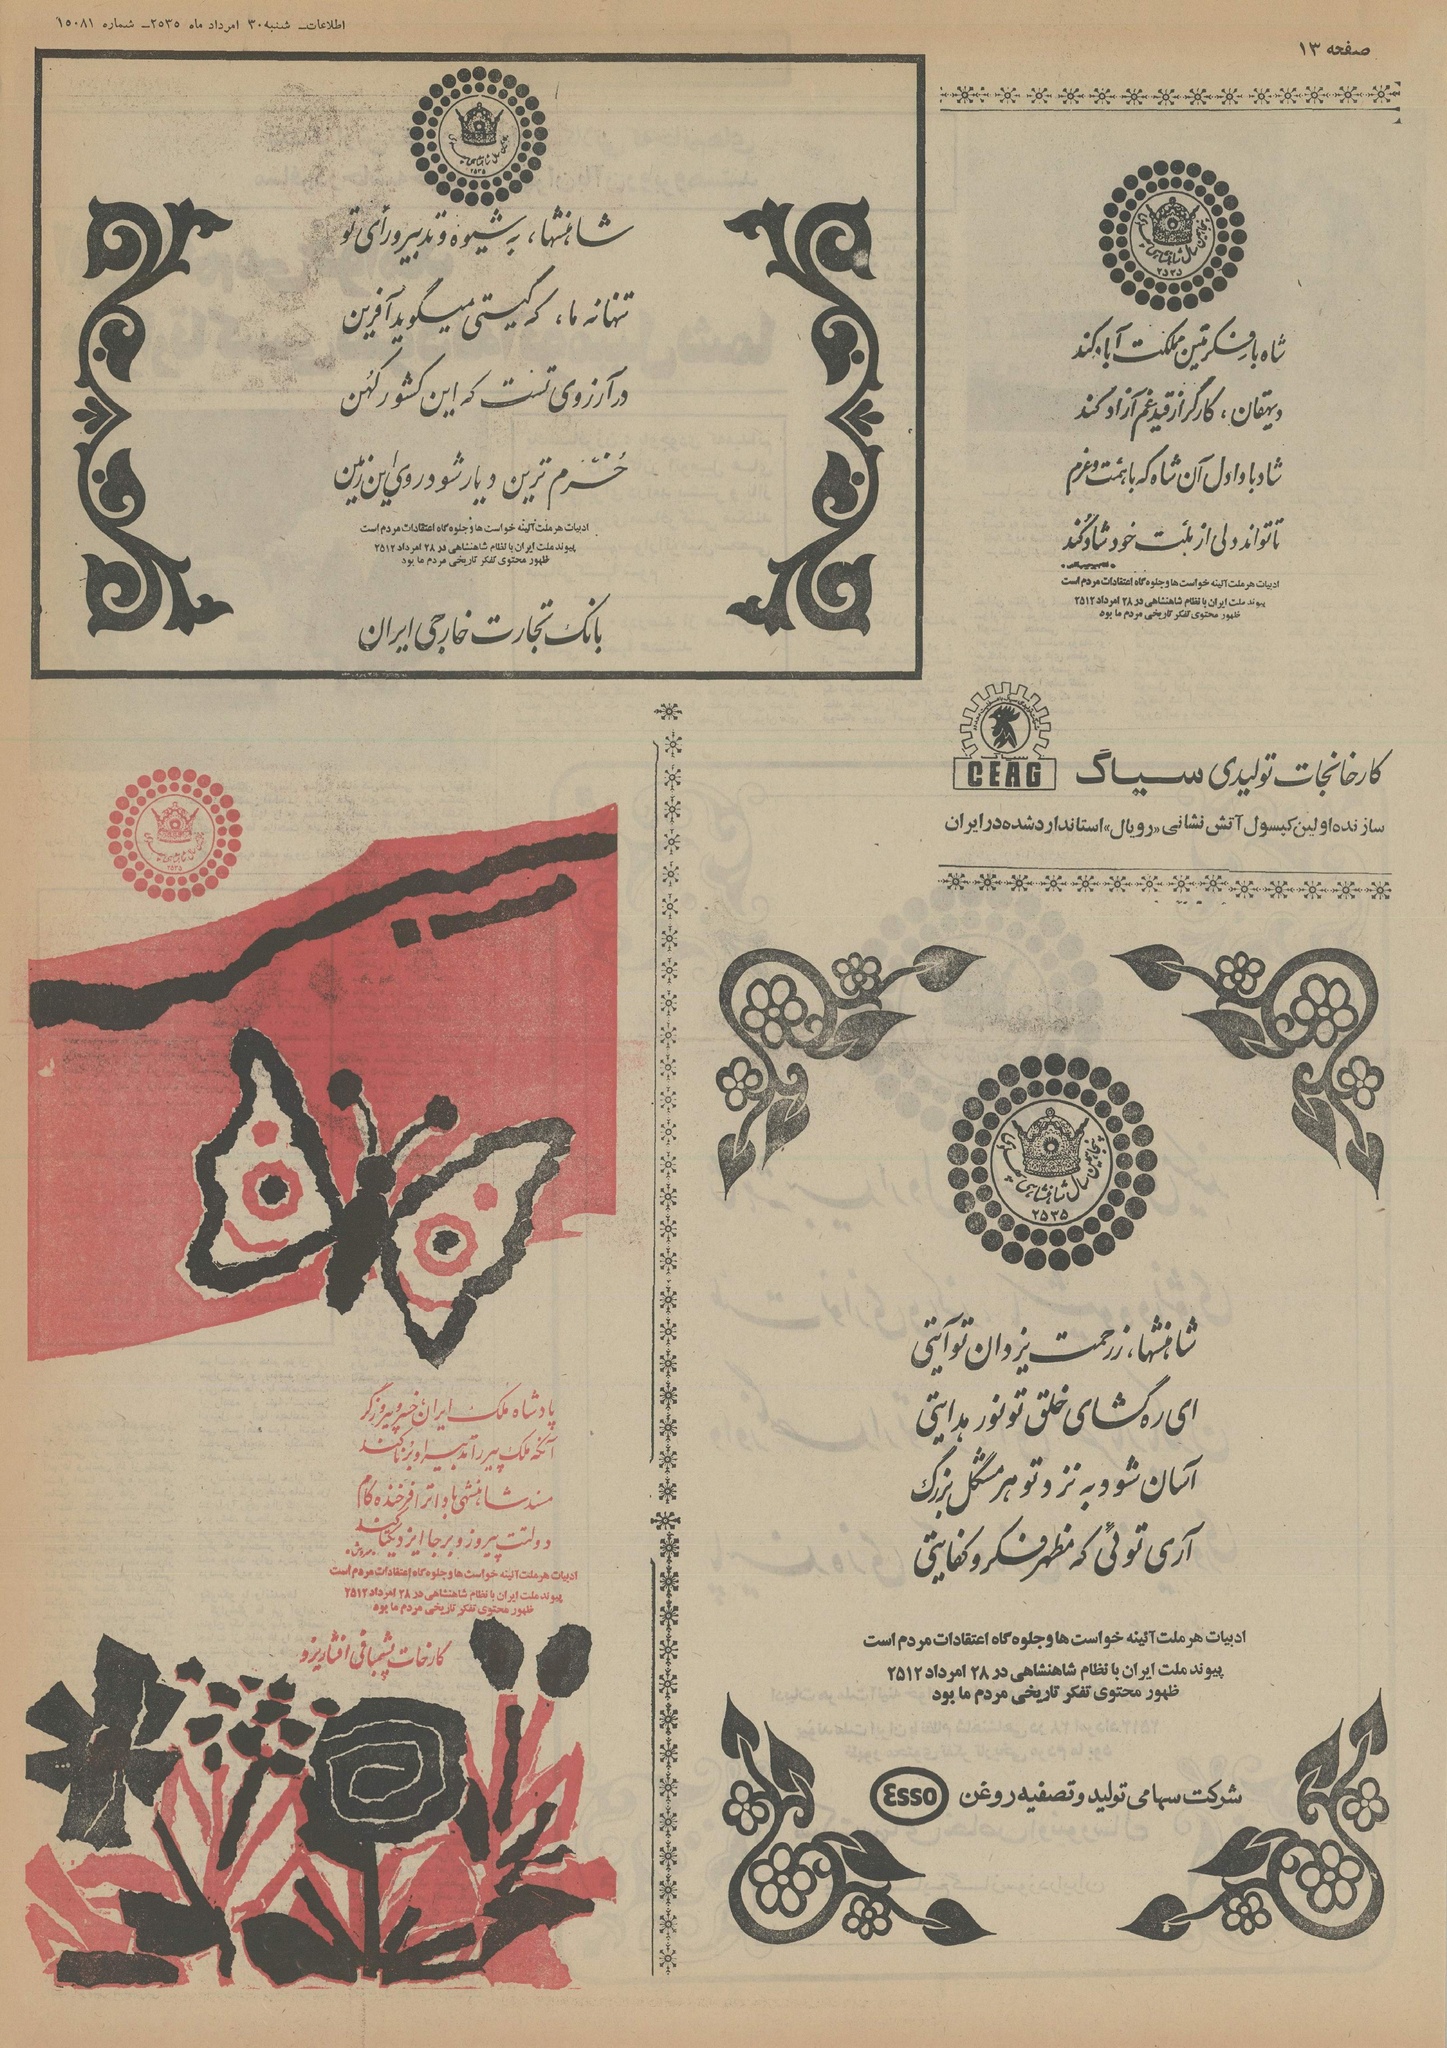 صفحه ۱۳
اطلاعات ـ شنبه ۳۰ امرداد ماه ۲۵۳۵ ـ شماره ۱۵۰۸۱
پنجاهمین سال شاهنشاهی پهلوی
۲۵۳۵
شاه با فکر متین مملکت آباد کند
دیهقان ، کارگر از قید غم آزاد کند
شاد بادا دل آن شاه که با همت و عزم
تا تواند دلی از ملت خود شاد کند
ادبیات هر ملت آئینه خواست ها و جلوه گاه اعتقادات مردم است
پیوند ملت ایران با نظام شاهنشاهی در ۲۸ امرداد ۲۵۱۲
ظهور محتوی تفکر تاریخی مردم ما بود
CEAG
کارخانجات تولیدی سیاگ
سازنده اولین کپسول آتش نشانی «رویال» استاندارد شده در ایران
پنجاهمین سال شاهنشاهی پهلوی
۲۵۳۵
شاهنشها، به شیوه و تدبیر و رأی تو
تنها نه ما، که گیتی میگوید آفرین
در آرزوی تست که این کشور کهن
خرم ترین دیار شود روی این زمین
ادبیات هر ملت آئینه خواست ها و جلوه گاه اعتقادات مردم است
پیوند ملت ایران با نظام شاهنشاهی در ۲۸ امرداد ۲۵۱۲
ظهور محتوی تفکر تاریخی مردم ما بود
بانک تجارت خارجی ایران
پنجاهمین سال شاهنشاهی پهلوی
۲۵۳۵
شاهنشها، ز رحمت یزدان تو آیتی
ای ره گشای خلق تو نور هدایتی
آسان شود به نزد تو هر مشگل بزرگ
آری توئی که مظهر فکر و کفایتی
ادبیات هر ملت آئینه خواست ها و جلوه گاه اعتقادات مردم است
پیوند ملت ایران با نظام شاهنشاهی در ۲۸ امرداد ۲۵۱۲
ظهور محتوی تفکر تاریخی مردم ما بود
شرکت سهامی تولید و تصفیه روغن Esso
پنجاهمین سال شاهنشاهی پهلوی
۲۵۳۵
پادشاه ملک ایران، خسرو پیروزگر
آنکه ملک پیر را تدبیر او برنا کند
مسند شاهنشهی بادا ترا فرخنده کام
دولتت پیروز و برجا ایزد یکتا کند
ادبیات هر ملت آئینه خواست ها و جلوه گاه اعتقادات مردم است
پیوند ملت ایران با نظام شاهنشاهی در ۲۸ امرداد ۲۵۱۲
ظهور محتوی تفکر تاریخی مردم ما بود
کارخانجات پشمبافی افشار یزد